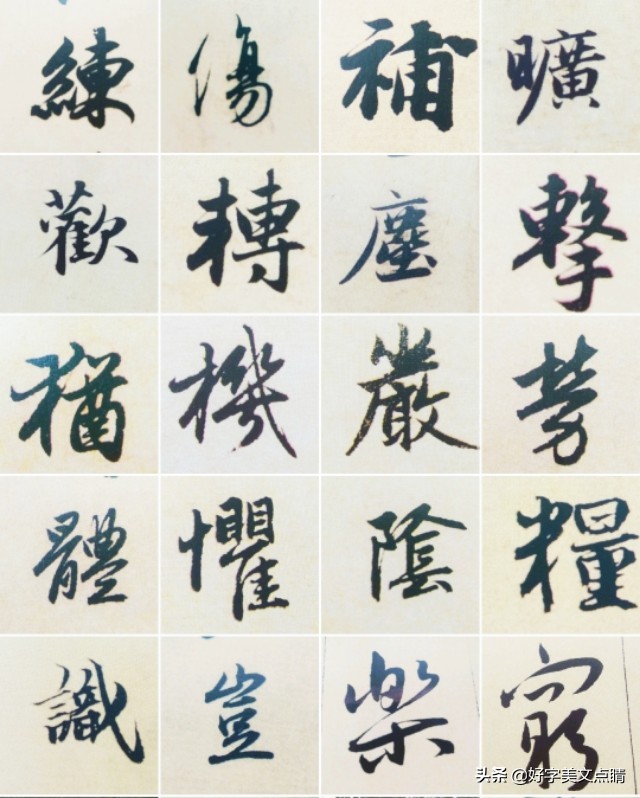 練傷補曠
歡轉塵擊
猶機嚴勞
體懼陰糧
識豈樂窮
头条 @好字美文点睛